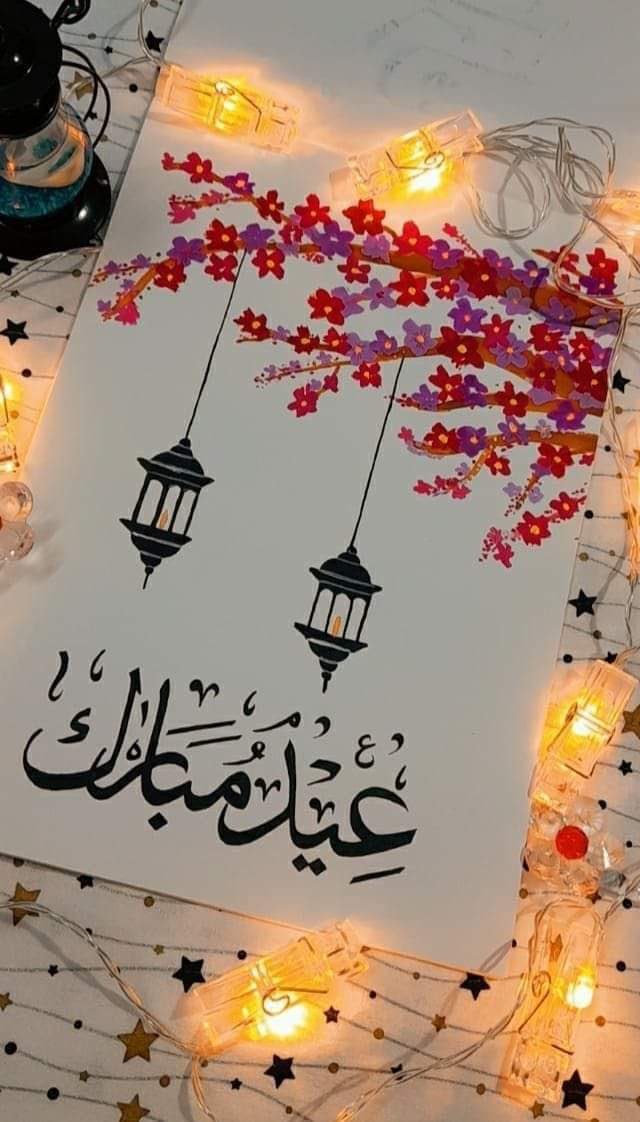 عِيدٌ مُبَارَك